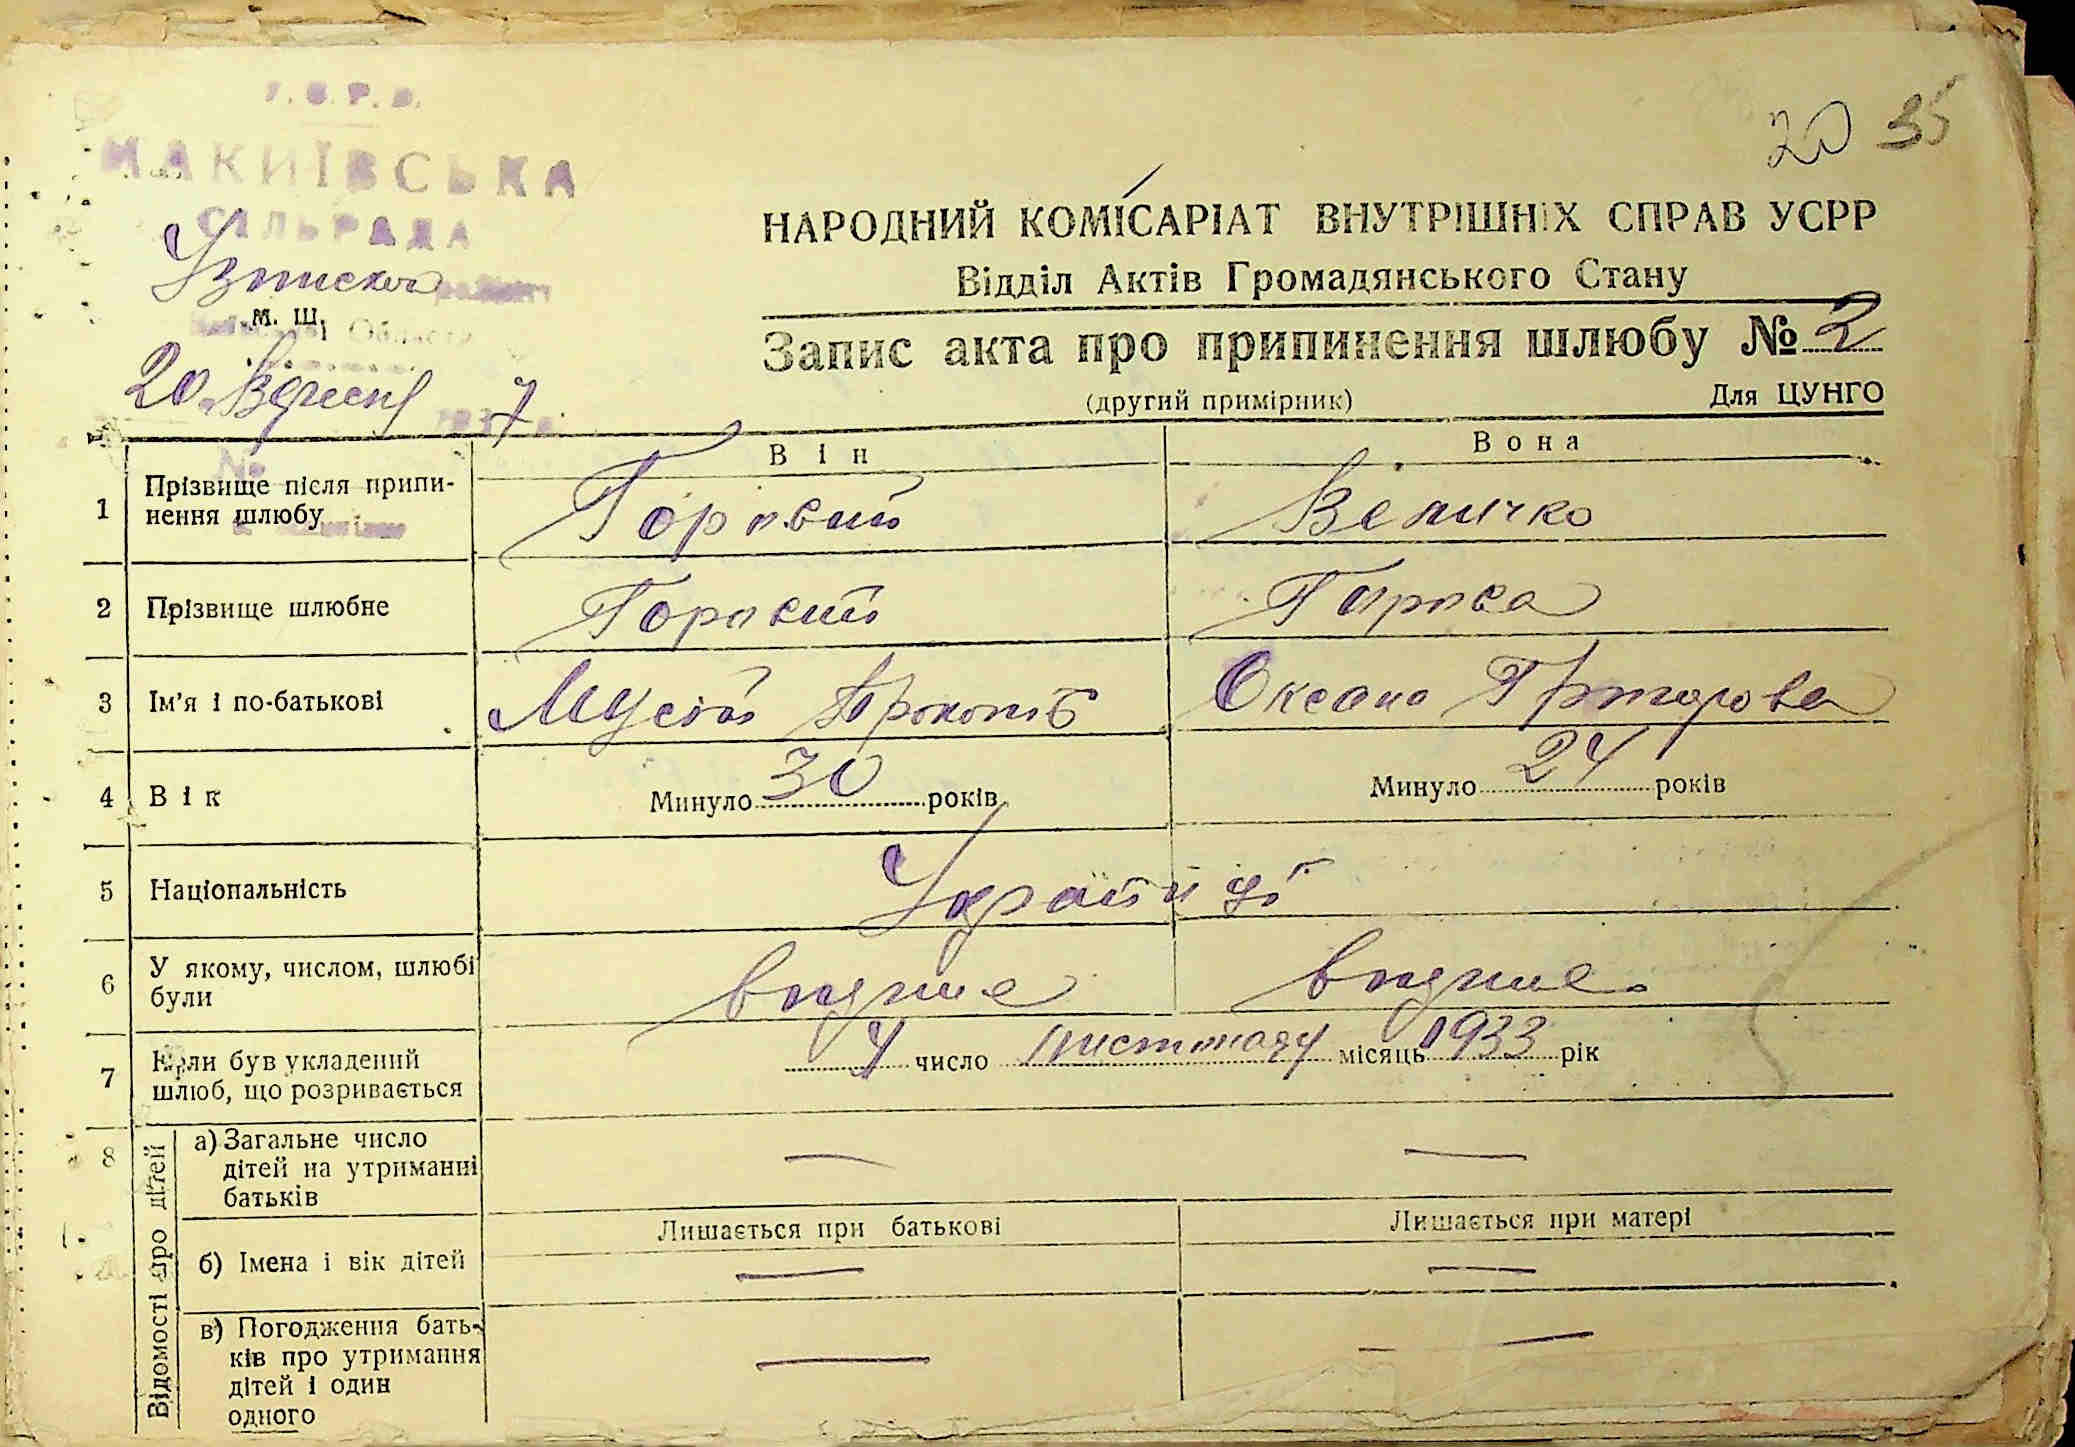 20 35
МАКИЇВСЬКА
СІЛЬРАДА
м. Ш.
Області
20 7
НАРОДНИЙ КОМІСАРІАТ ВНУТРІШНІХ СПРАВ УСРР
Відділ Актів Громадянського Стану
Запис акта про припинення шлюбу № 2
(другий примірник) Для ЦУНГО
Він Вона
1 Прізвище після припи-
нення шлюбу Горовий Величко
2 Прізвище шлюбне Горовий
3 Ім'я і по-батькові Мусій Прокопів Оксана Григорова
4 Вік Минуло 30 років Минуло 24 років
5 Національність Українці
6 У якому, числом, шлюбі
були
7 Коли був укладений
шлюб, що розривається число листопаду місяць 1933 рік
8 Відомості про дітей
а) Загальне число
дітей на утриманні
батьків — —
Лишається при батькові Лишається при матері
б) Імена і вік дітей — —
в) Погодження бать-
ків про утримання
дітей і один
одного — —